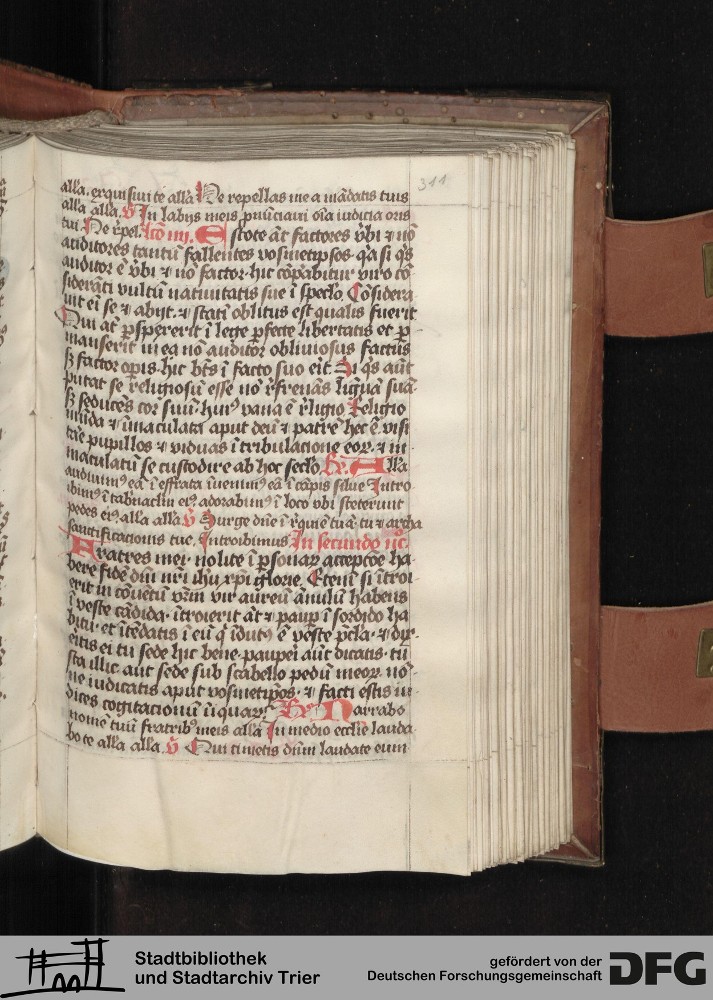 311
all'a. exquisiui te all'a Ne repellas me a mādatis tuis
all'a all'a. V̄ In labijs meis pnūciaui oīa iudicia oris
tui. Ne rpel. lcō iiij. Estote aūt factores v̄bi ⁊ nō
auditores tantū fallentes vosmetip̄sos. q̄a si q̄s
auditor ē v̄bi ⁊ nō factor. hic cōpabitur viro cō
siderāti vultū natiuitatis sue ī spec̄lo. Cōsidera
uit ei se ⁊ abijt. ⁊ statī oblitus est qualis fuerit
Qui at̄ p̄sp̄exerit ī lege p̄fecte libertatis et p̄
manserit in ea nō auditor obliuiosus factus
sꝫ factor op̄is. hic bt̄s ī facto suo erit. Si q̄s aūt
putat se religiosū esse nō r̄frenās liguā suā
sꝫ seducēs cor suū. huiꝰ vana ē r̄ligio Religio
mūda ⁊ īmaculata aput deū ⁊ patrē hec ē. visi
tare pupillos ⁊ viduas ī tribulacione eoꝝ. ⁊ in
maculatū se custodire ab hoc sec̄lo. Rꝫ. All'a
audiuimꝰ eā ī effrata īuenimꝰ eā ī cāpis silue Intro
ibimꝰ ī tabnaclm eiꝰ adorabimꝰ ī loco vbi steterunt
pedes eiꝰ. all'a all'a. V̄ Surge dn̄e ī rquiē tuā tu ⁊ archa
sanctificationis tue. Introibimus In secundo nc̄.
Fratres mei. nolite ī p̄sonaꝝ acceptōe ha
bere fidē dn̄i nr̄i ih̄u xp̄i glorie. Eteni si ītroi
erit in cōuētū vr̄m vir aureū anulū habens
ī veste cādida. ītroierit āt ⁊ paup̄ ī sordido ha
bitu. et ītēdatis ī eū q̄ īdutꝰ ē veste p̄cl'a. ⁊ dix̄
eritis ei tu sede hic bene. pauperi aūt dicatis. tu
sta illic. aut sede sub scabello pedū meoꝝ. nō
ne iudicatis aput vosmetip̄os. ⁊ facti estis iu
dices cogitacionū īiquaꝝ. Rꝫ. Narrabo
nomē tuū fratribꝰ meis all'a In medio eccl̄ie lauda
bo te all'a all'a. V̄ Qui timetis dn̄m laudate eum
Stadtbibliothek
und Stadtarchiv Trier
gefördert von der
Deutschen Forschungsgemeinschaft
DFG